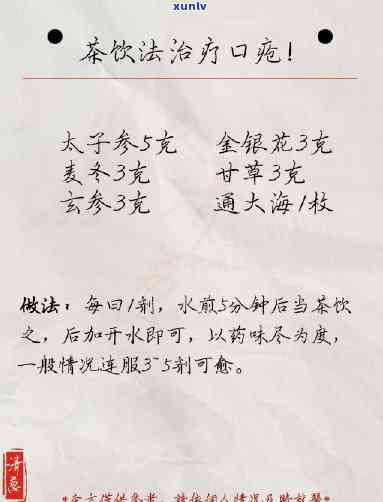 xunlv
茶饮法治疗口疮!
太子参5克 金银花3克
麦冬3克 甘草3克
玄参3克 通大海1枚
做法：每日1剂，水煎5分钟后当茶饮
之，后加开水即可，以药味尽为度，
一般情况连服3~5剂可愈。